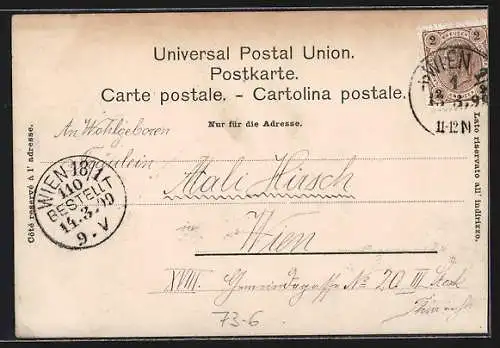 Universal Postal Union.
Postkarte.
Carte postale. - Cartolina postale.
Nur für die Adresse.
Côté reservé à l' adresse.
Lato riservato all' indirizzo.
2 2
WIEN
1
II-12N
An Wohlgeboren
Fräulein
Mali Hirsch
Wien
XVIII. Gemeindegasse No 20 III Stock
WIEN 18/1
110
BESTELLT
14.3.00
9.V
73-6